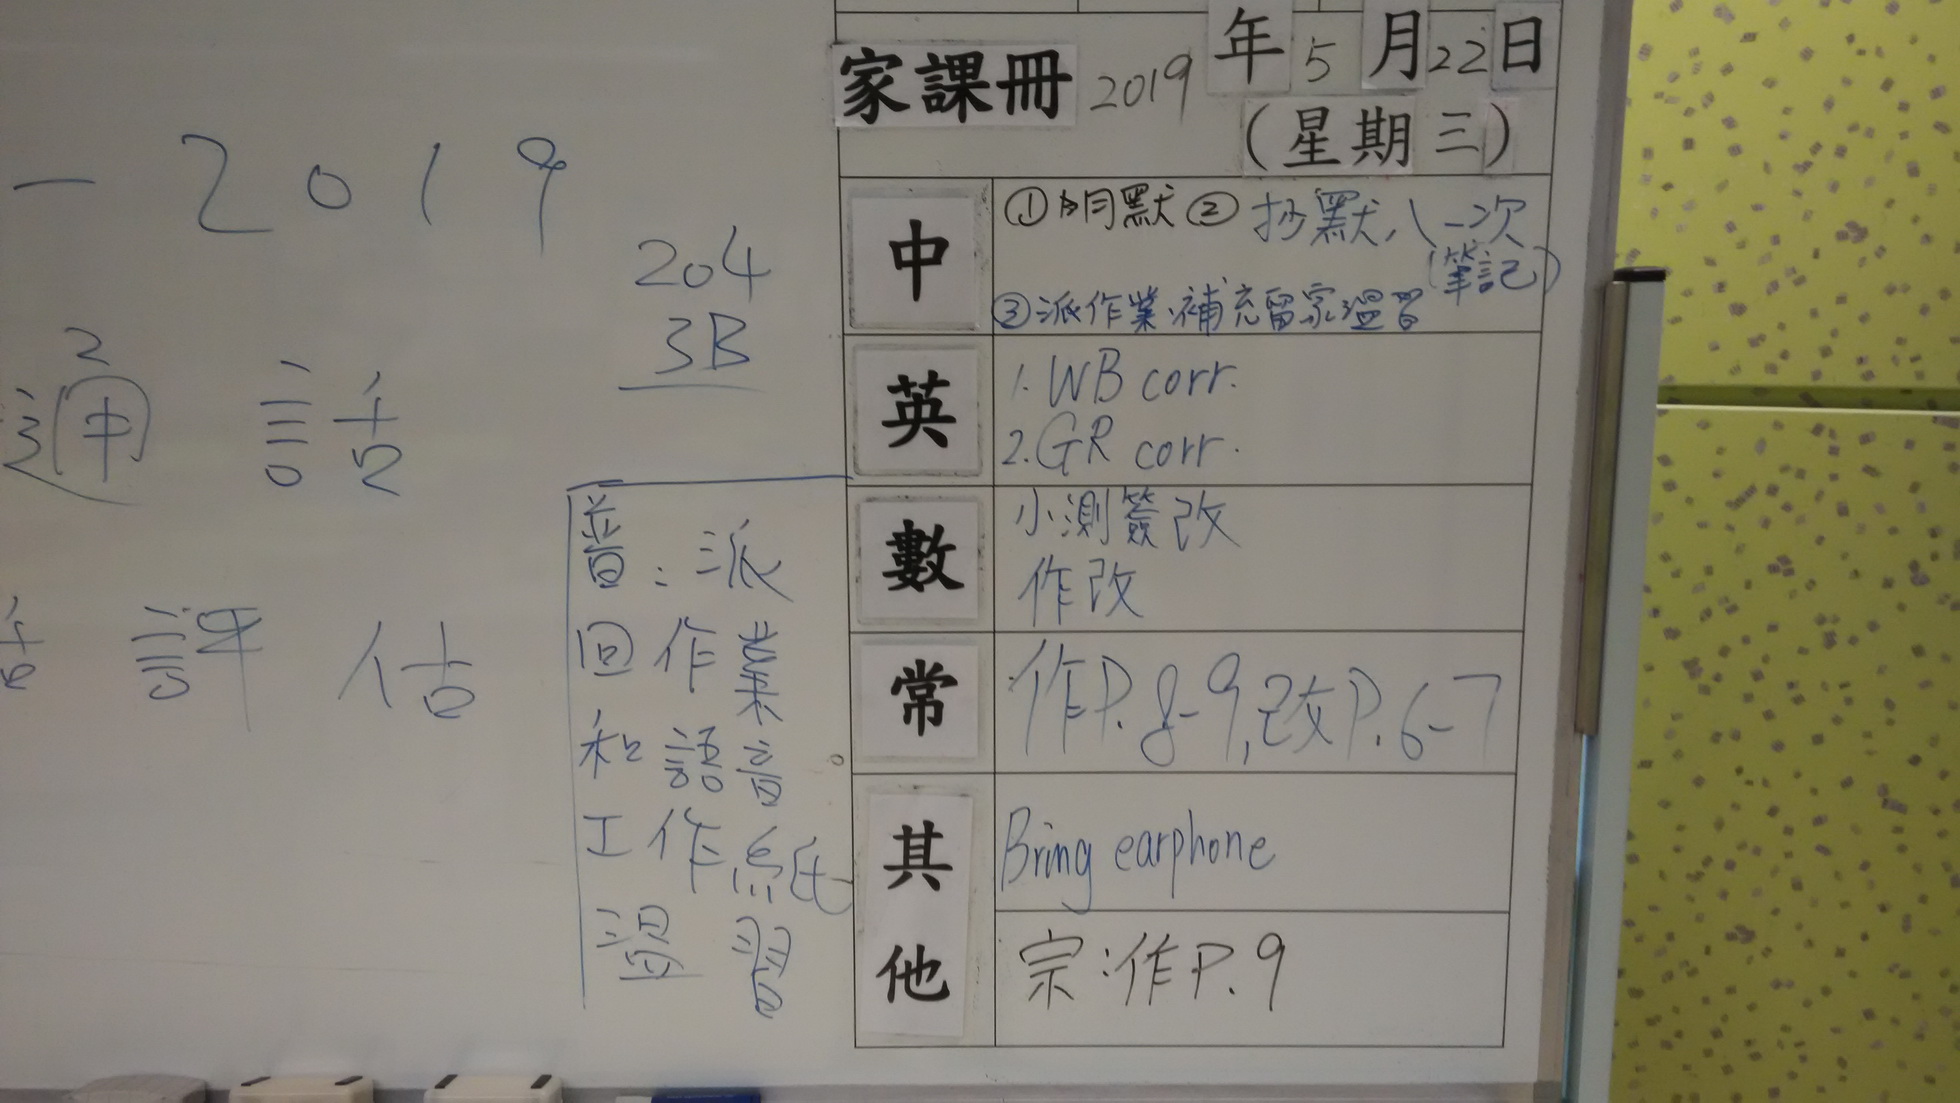 - 2019
204
3B
2
通 話
評 估
普：派
回作業
和語音
工作紙
溫習
家課冊 2019年5月22日
(星期三)
中
①明默 ② 抄默八一次
(筆記)
③派作業、補充留家溫習
英
1. WB corr.
2. GR corr.
數
小測簽改
作改
常
作P.8-9,改P.6-7
其他
Bring earphone
宗：作P.9